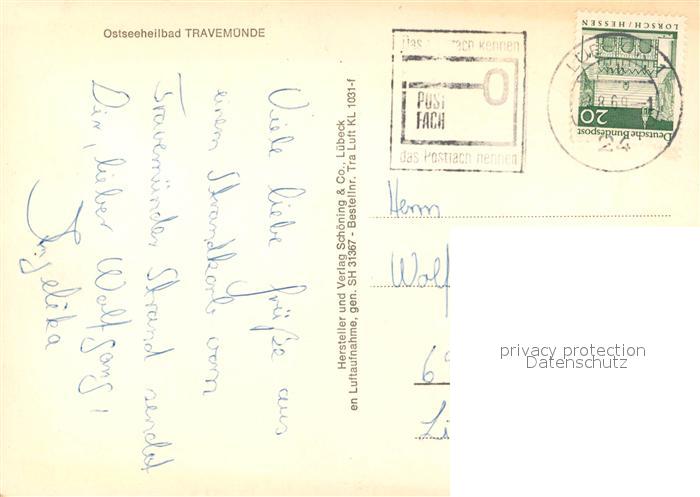 Ostseeheilbad TRAVEMÜNDE
Viele liebe Grüße aus
einem Strandkorb vom
Travemünder Strand sendet
Dir, lieber Wolfgang!
Angelika
Hersteller und Verlag Schöning & Co., Lübeck
en Luftaufnahme, gen. SH 31367 - Bestellnr. Tra Luft KL 1031-f
Das Postfach kennen
POST
FACH
das Postfach nennen
LORSCH/HESSEN
20
Deutsche Bundespost
24
Herrn
Wolf
6
Li
privacy protection
Datenschutz